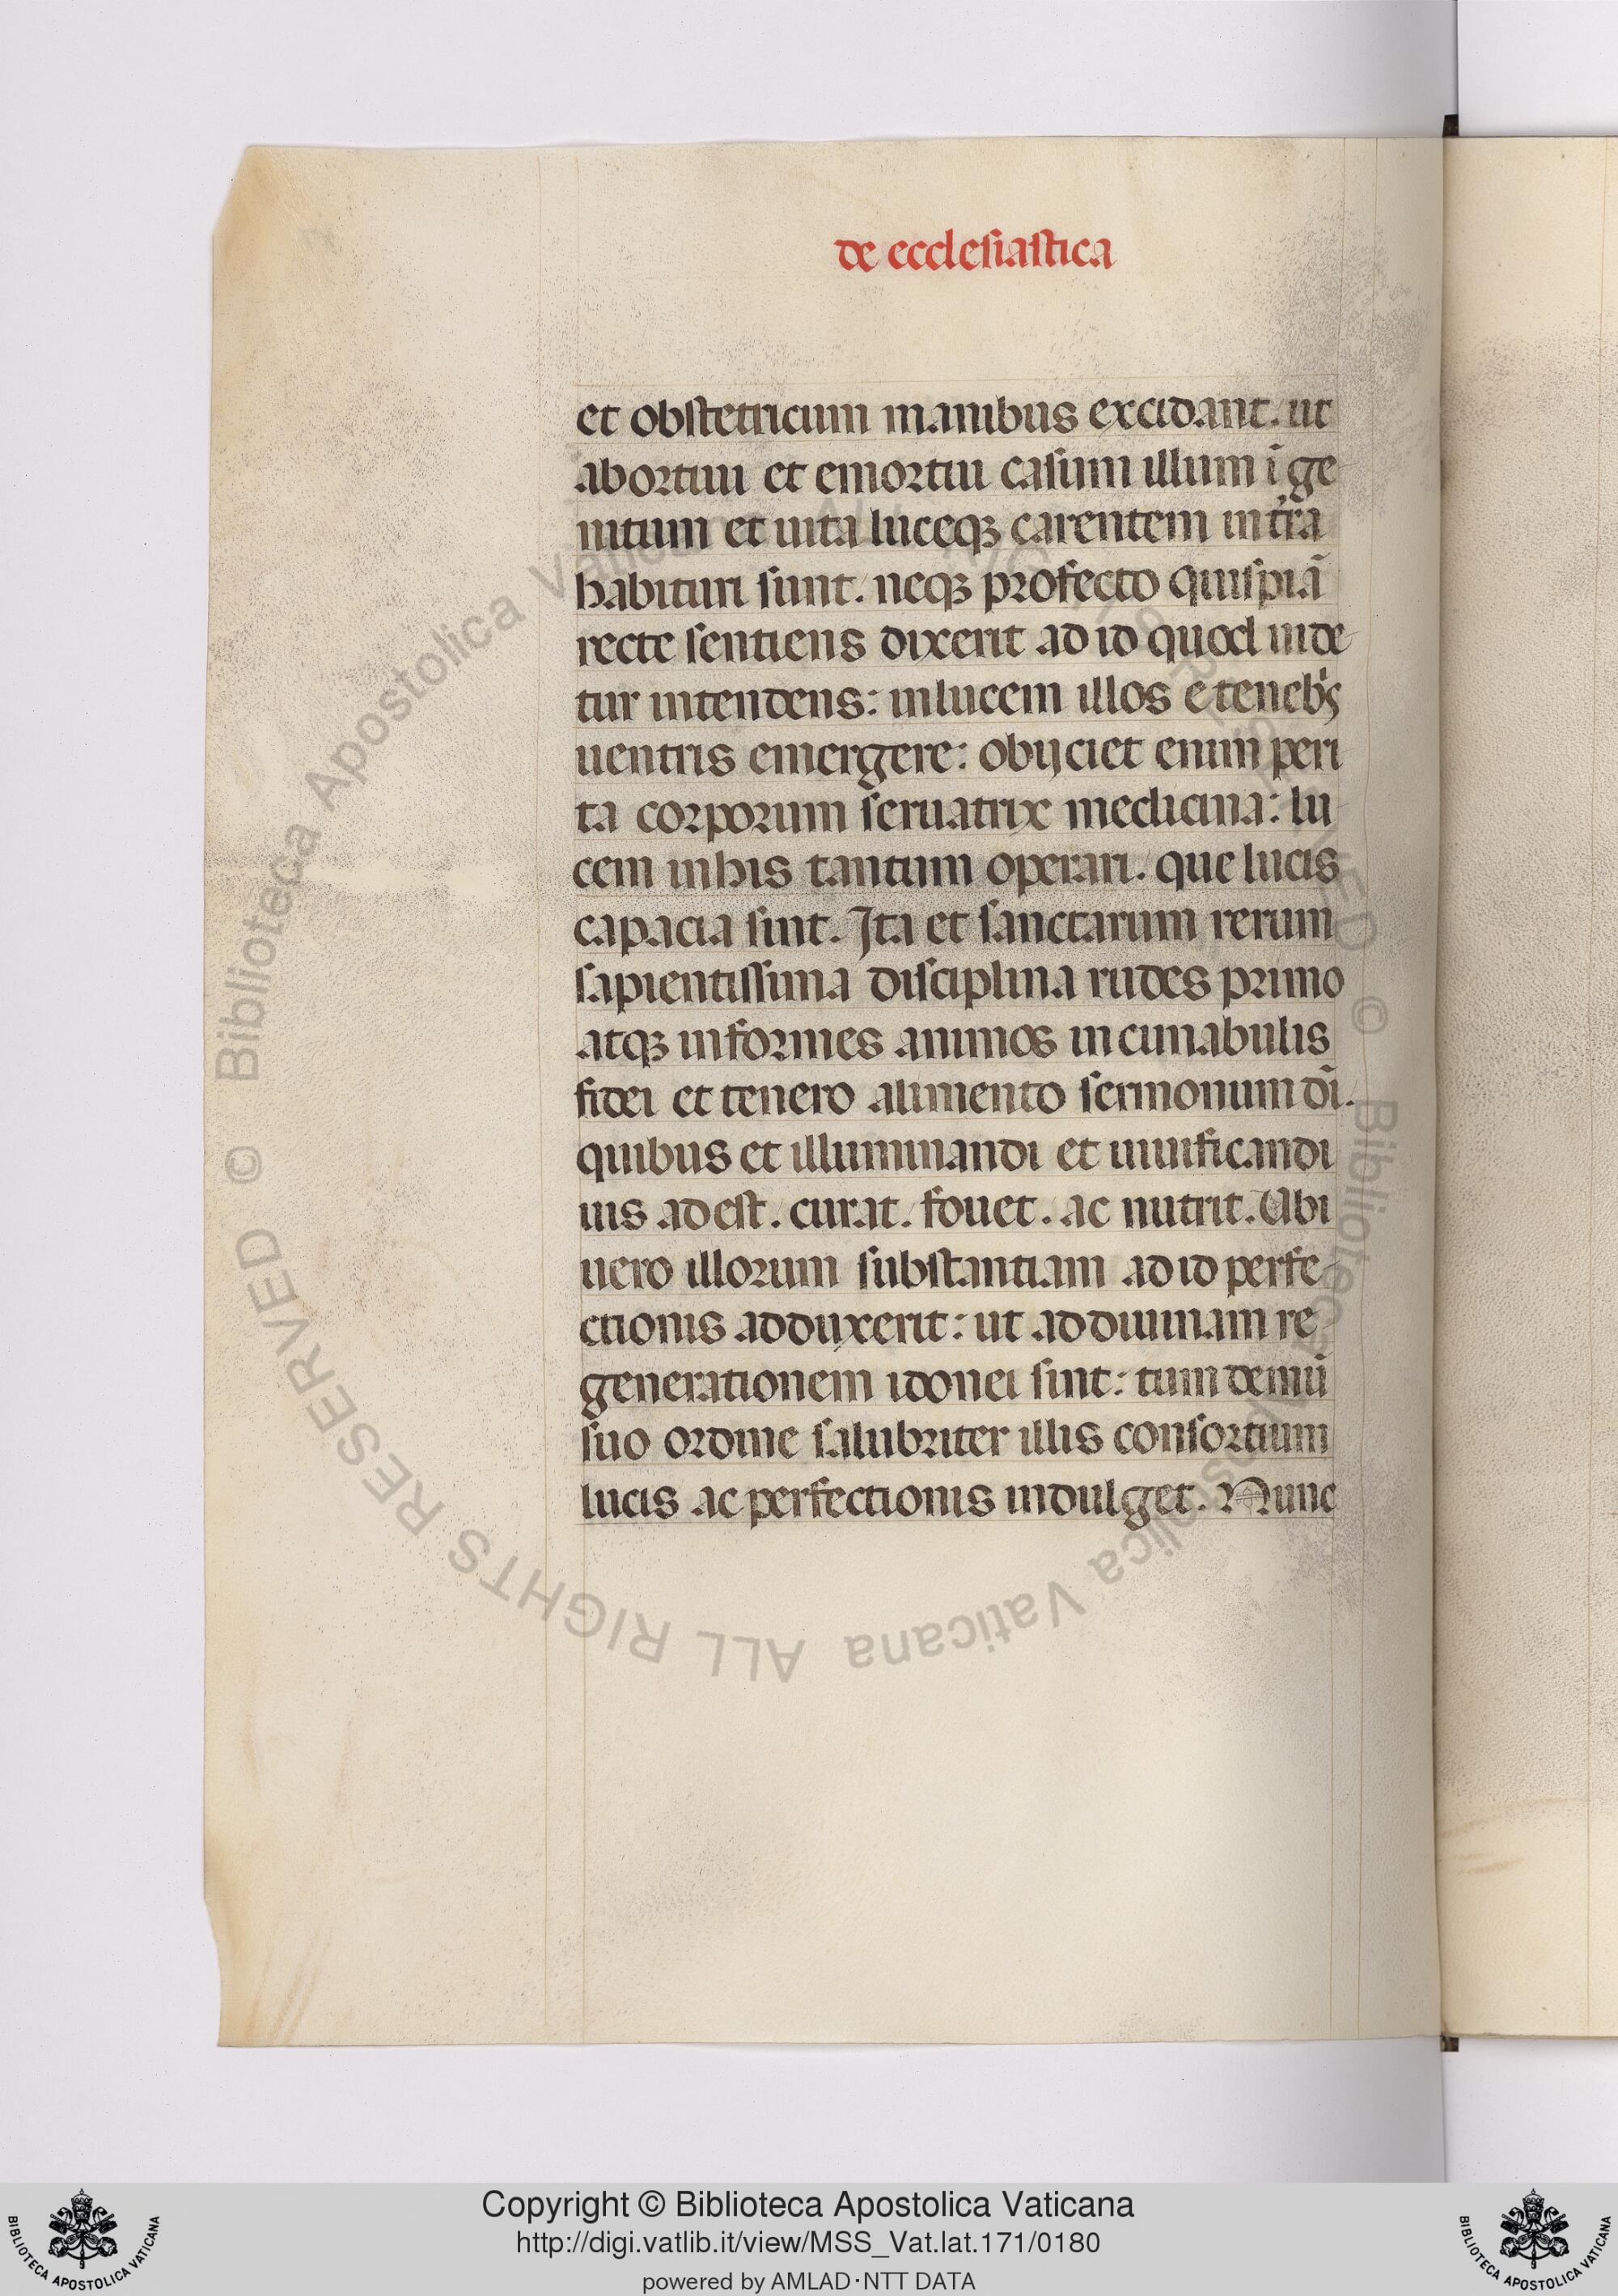 de ecclesiastica
et obstetricum manibus excidant. ut
abortiui et emortui casum illum ī ge
nitum et uita luceqꝫ carentem in tr̄a
habituri sunt. neqꝫ profecto quispiā
recte sentiens dixerit ad id quod uide
tur intendens: in lucem illos e teneb's
uentris emergere: obijciet enim peri
ta corporum seruatrix medicina: lu
cem in his tantum operari. que lucis
capacia sint. Ita et sanctarum rerum
sapientissima disciplina rudes primo
atqꝫ informes animos in cunabulis
fidei et tenero alimento sermonum dī.
quibus et illuminandi et uiuificandi
uis adest. curat. fouet. ac nutrit. Ubi
uero illorum substantiam ad id perfe
ctionis adduxerit: ut ad diuinam re
generationem idonei sint: tum demū
suo ordine salubriter illis consortium
lucis ac perfectionis indulget. Nunc
© Biblioteca Apostolica Vaticana ALL RIGHTS RESERVED © Biblioteca Apostolica Vaticana ALL RIGHTS RESERVED
Copyright © Biblioteca Apostolica Vaticana
http://digi.vatlib.it/view/MSS_Vat.lat.171/0180
powered by AMLAD·NTT DATA
BIBLIOTECA APOSTOLICA VATICANA
BIBLIOTECA APOSTOLICA VATICANA